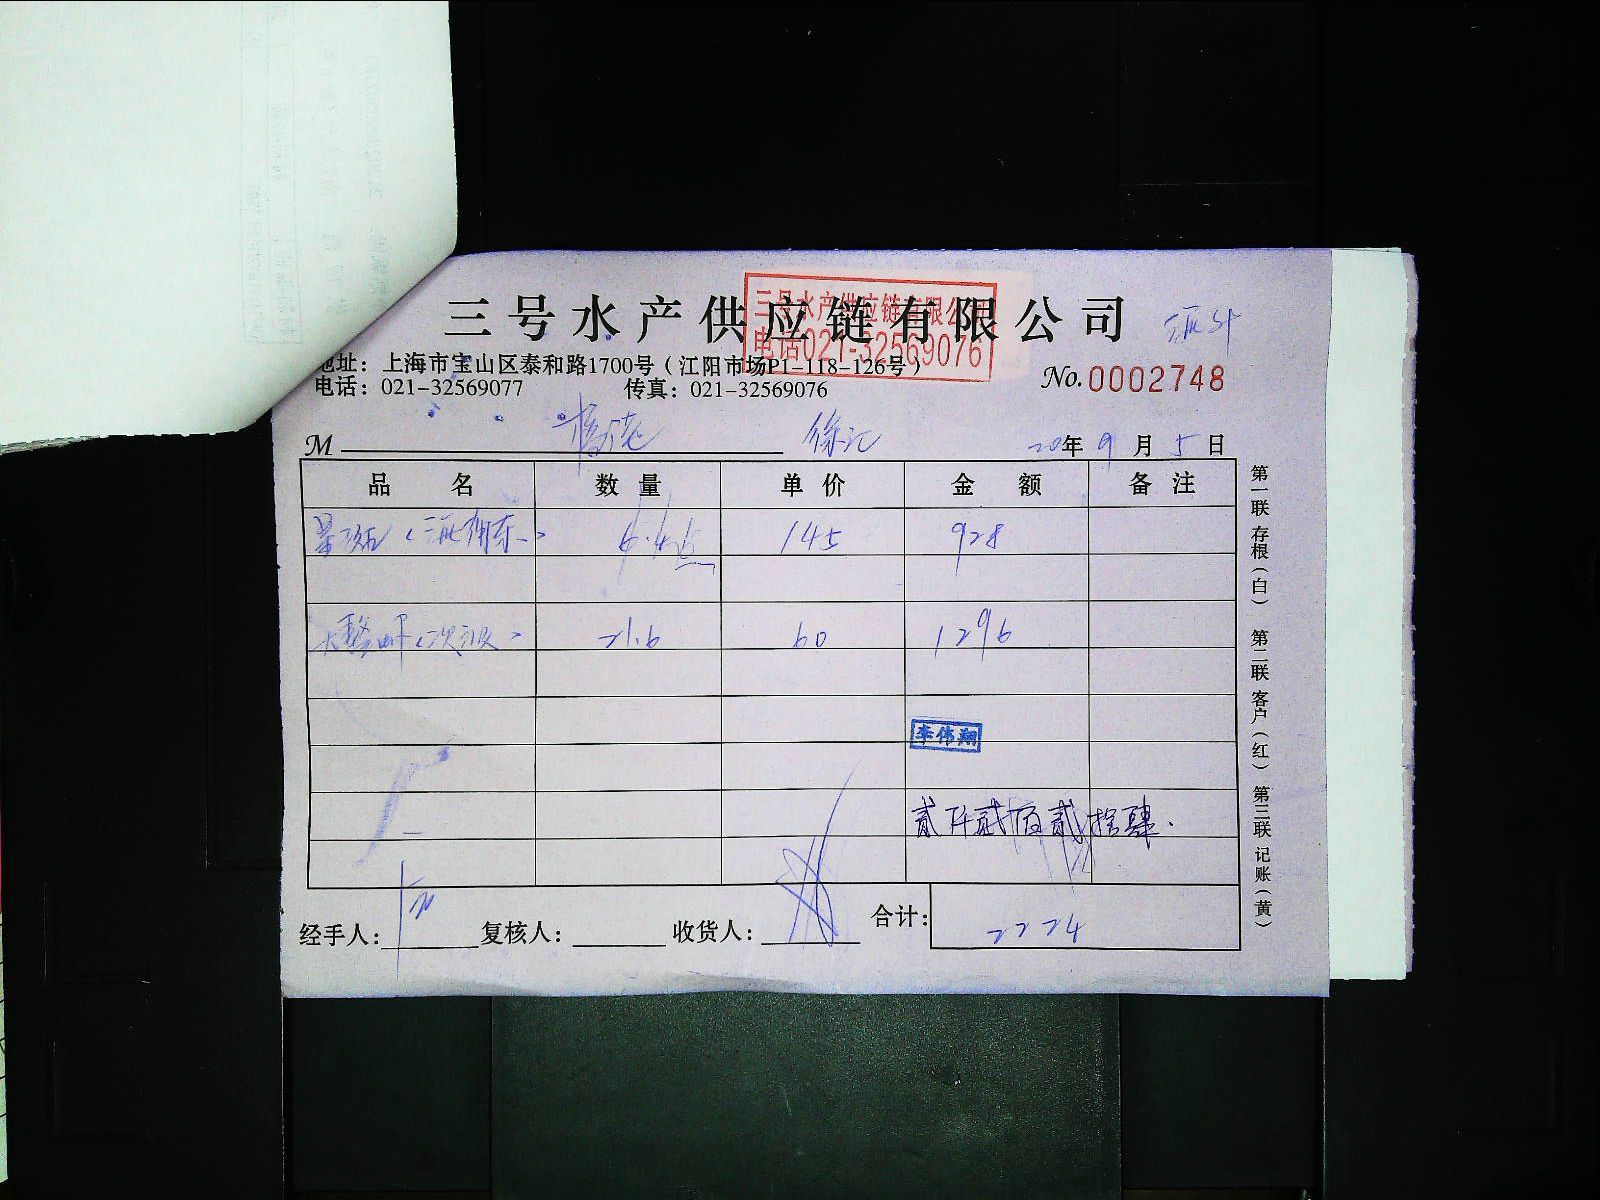 三号水产供应链有限公司
三号水产供应链有限公司
电话021-32569076
地址：上海市宝山区泰和路1700号（江阳市场P1-118-126号）
No.0002748
电话：021-32569077 传真：021-32569076
M 徐汇 20年9月5日
品名 数量 单价 金额 备注
145 928
大 虾（次级） 21.6 60 1296
李伟翔
贰仟贰佰贰拾肆.
经手人： 复核人： 收货人： 合计： 2224
第一联 存根（白） 第二联 客户（红） 第三联 记账（黄）